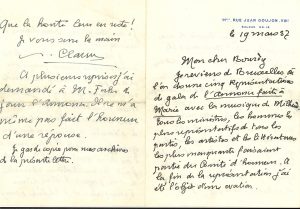 Que la honte leur en reste!
Je vous serre la main
. Claudel
A plusieurs reprises j'ai
demandé à M. Fabre de
jouer l'Annonce. Il ne m'a
même pas fait l'honneur
d'une réponse.
Je garde copie pour mes archives
de la présente lettre.
RUE JEAN GOUJON. VIII
le 19 mars 37
Mon cher Bourdet
Je reviens de Bruxelles où
l'on donne cinq Représentations
de gala de l'Annonce faite à
Marie avec la musique de Milhaud
Tous les ministres, les hommes les
plus représentatifs de tous les
partis, les artistes et les littérateurs
les plus marquants faisaient
partie du Comité d'honneur. A
la fin de la représentation j'ai
été l'objet d'une ovation.